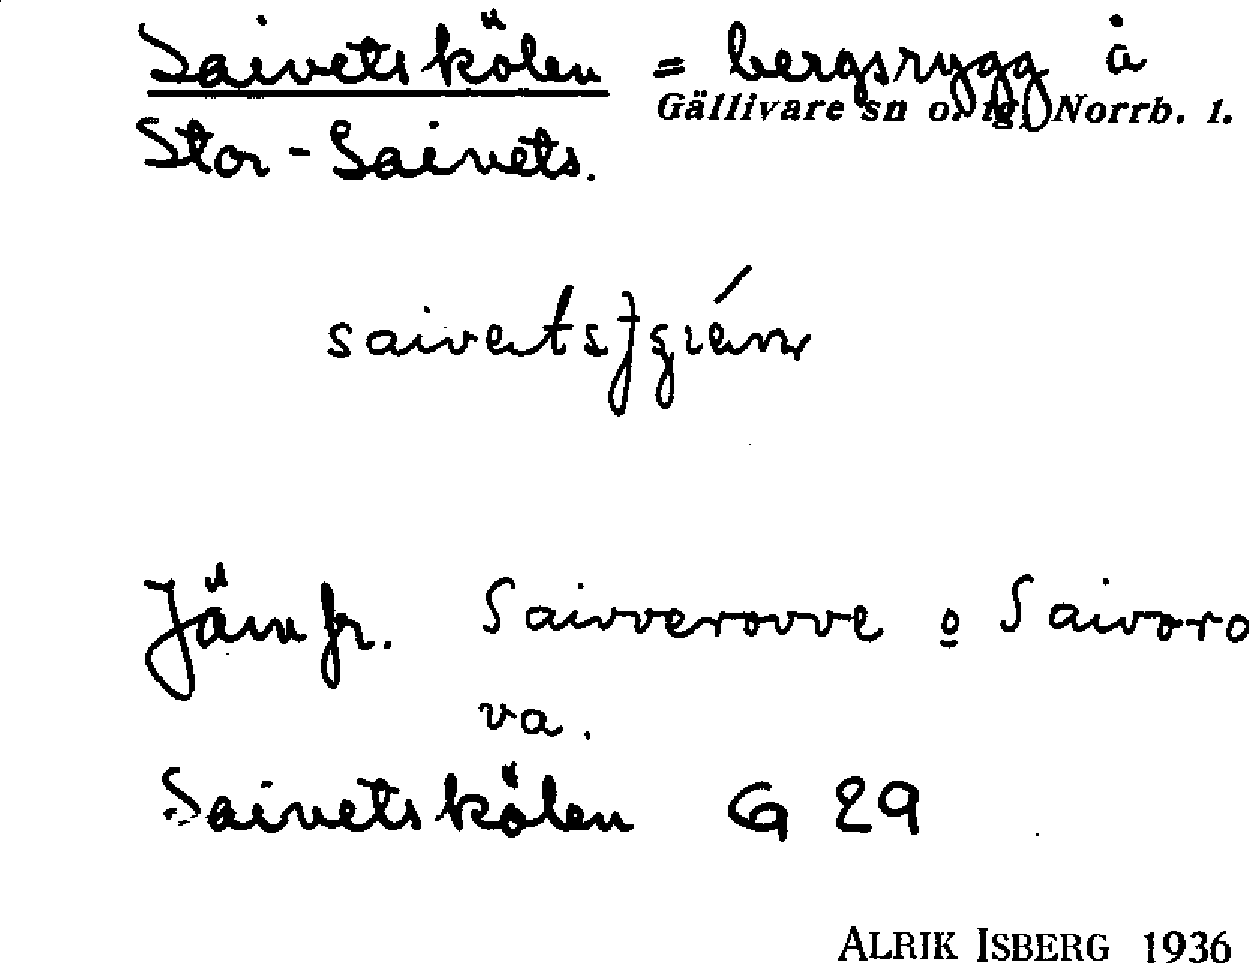 Saivetskölen = bergsrygg å
Gällivare sn o. tg, Norrb. l.
Stor-Saivets.
Jämfr. Saivverovve o Saivoro
va.
Saivetskölen G 29
ALRIK ISBERG 1936